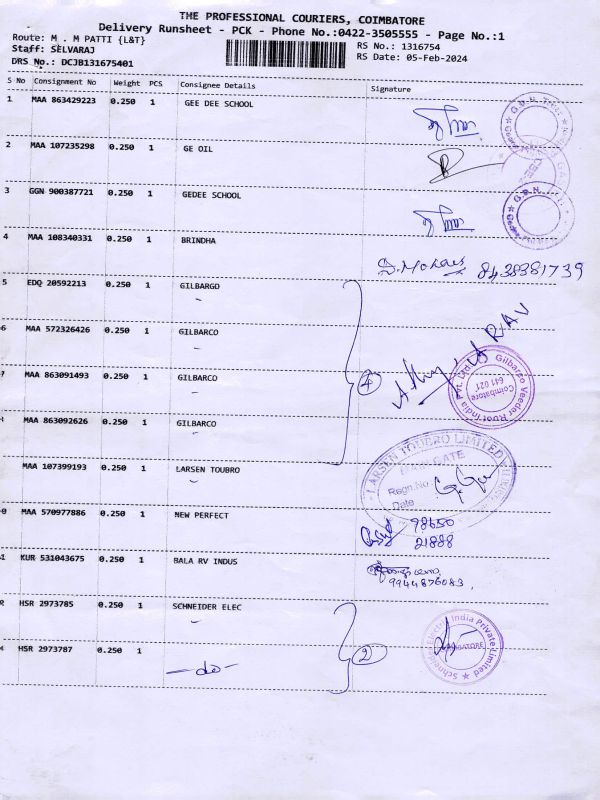 THE PROFESSIONAL COURIERS, COIMBATORE
Delivery Runsheet - PCK - Phone No.:0422-3505555 - Page No.:1
Route: M . M PATTI {L&T}
RS No.: 1316754
Staff: SELVARAJ
RS Date: 05-Feb-2024
DRS No.: DCJB131675401
S No Consignment No Weight PCS Consignee Details Signature
1 MAA 863429223 0.250 1 GEE DEE SCHOOL
2 MAA 107235298 0.250 1 GE OIL
3 GGN 900387721 0.250 1 GEDEE SCHOOL
4 MAA 108340331 0.250 1 BRINDHA
8438381739
5 EDQ 20592213 0.250 1 GILBARGO
6 MAA 572326426 0.250 1 GILBARCO
7 MAA 863091493 0.250 1 GILBARCO
4
ARAV
Gilbarco Veeder Root India Pvt. Ltd.
Coimbatore
641 021
MAA 863092626 0.250 1 GILBARCO
MAA 107399193 0.250 1 LARSEN TOUBRO
LARSEN TOUBRO LIMITED
GATE
Regn.No
Date
0 MAA 570977886 0.250 1 NEW PERFECT
98650
21888
1 KUR 531043675 0.250 1 BALA RV INDUS
9944876083
HSR 2973785 0.250 1 SCHNEIDER ELEC
2
Schneider Electric India Private Limited
HSR 2973787 0.250 1
-do-